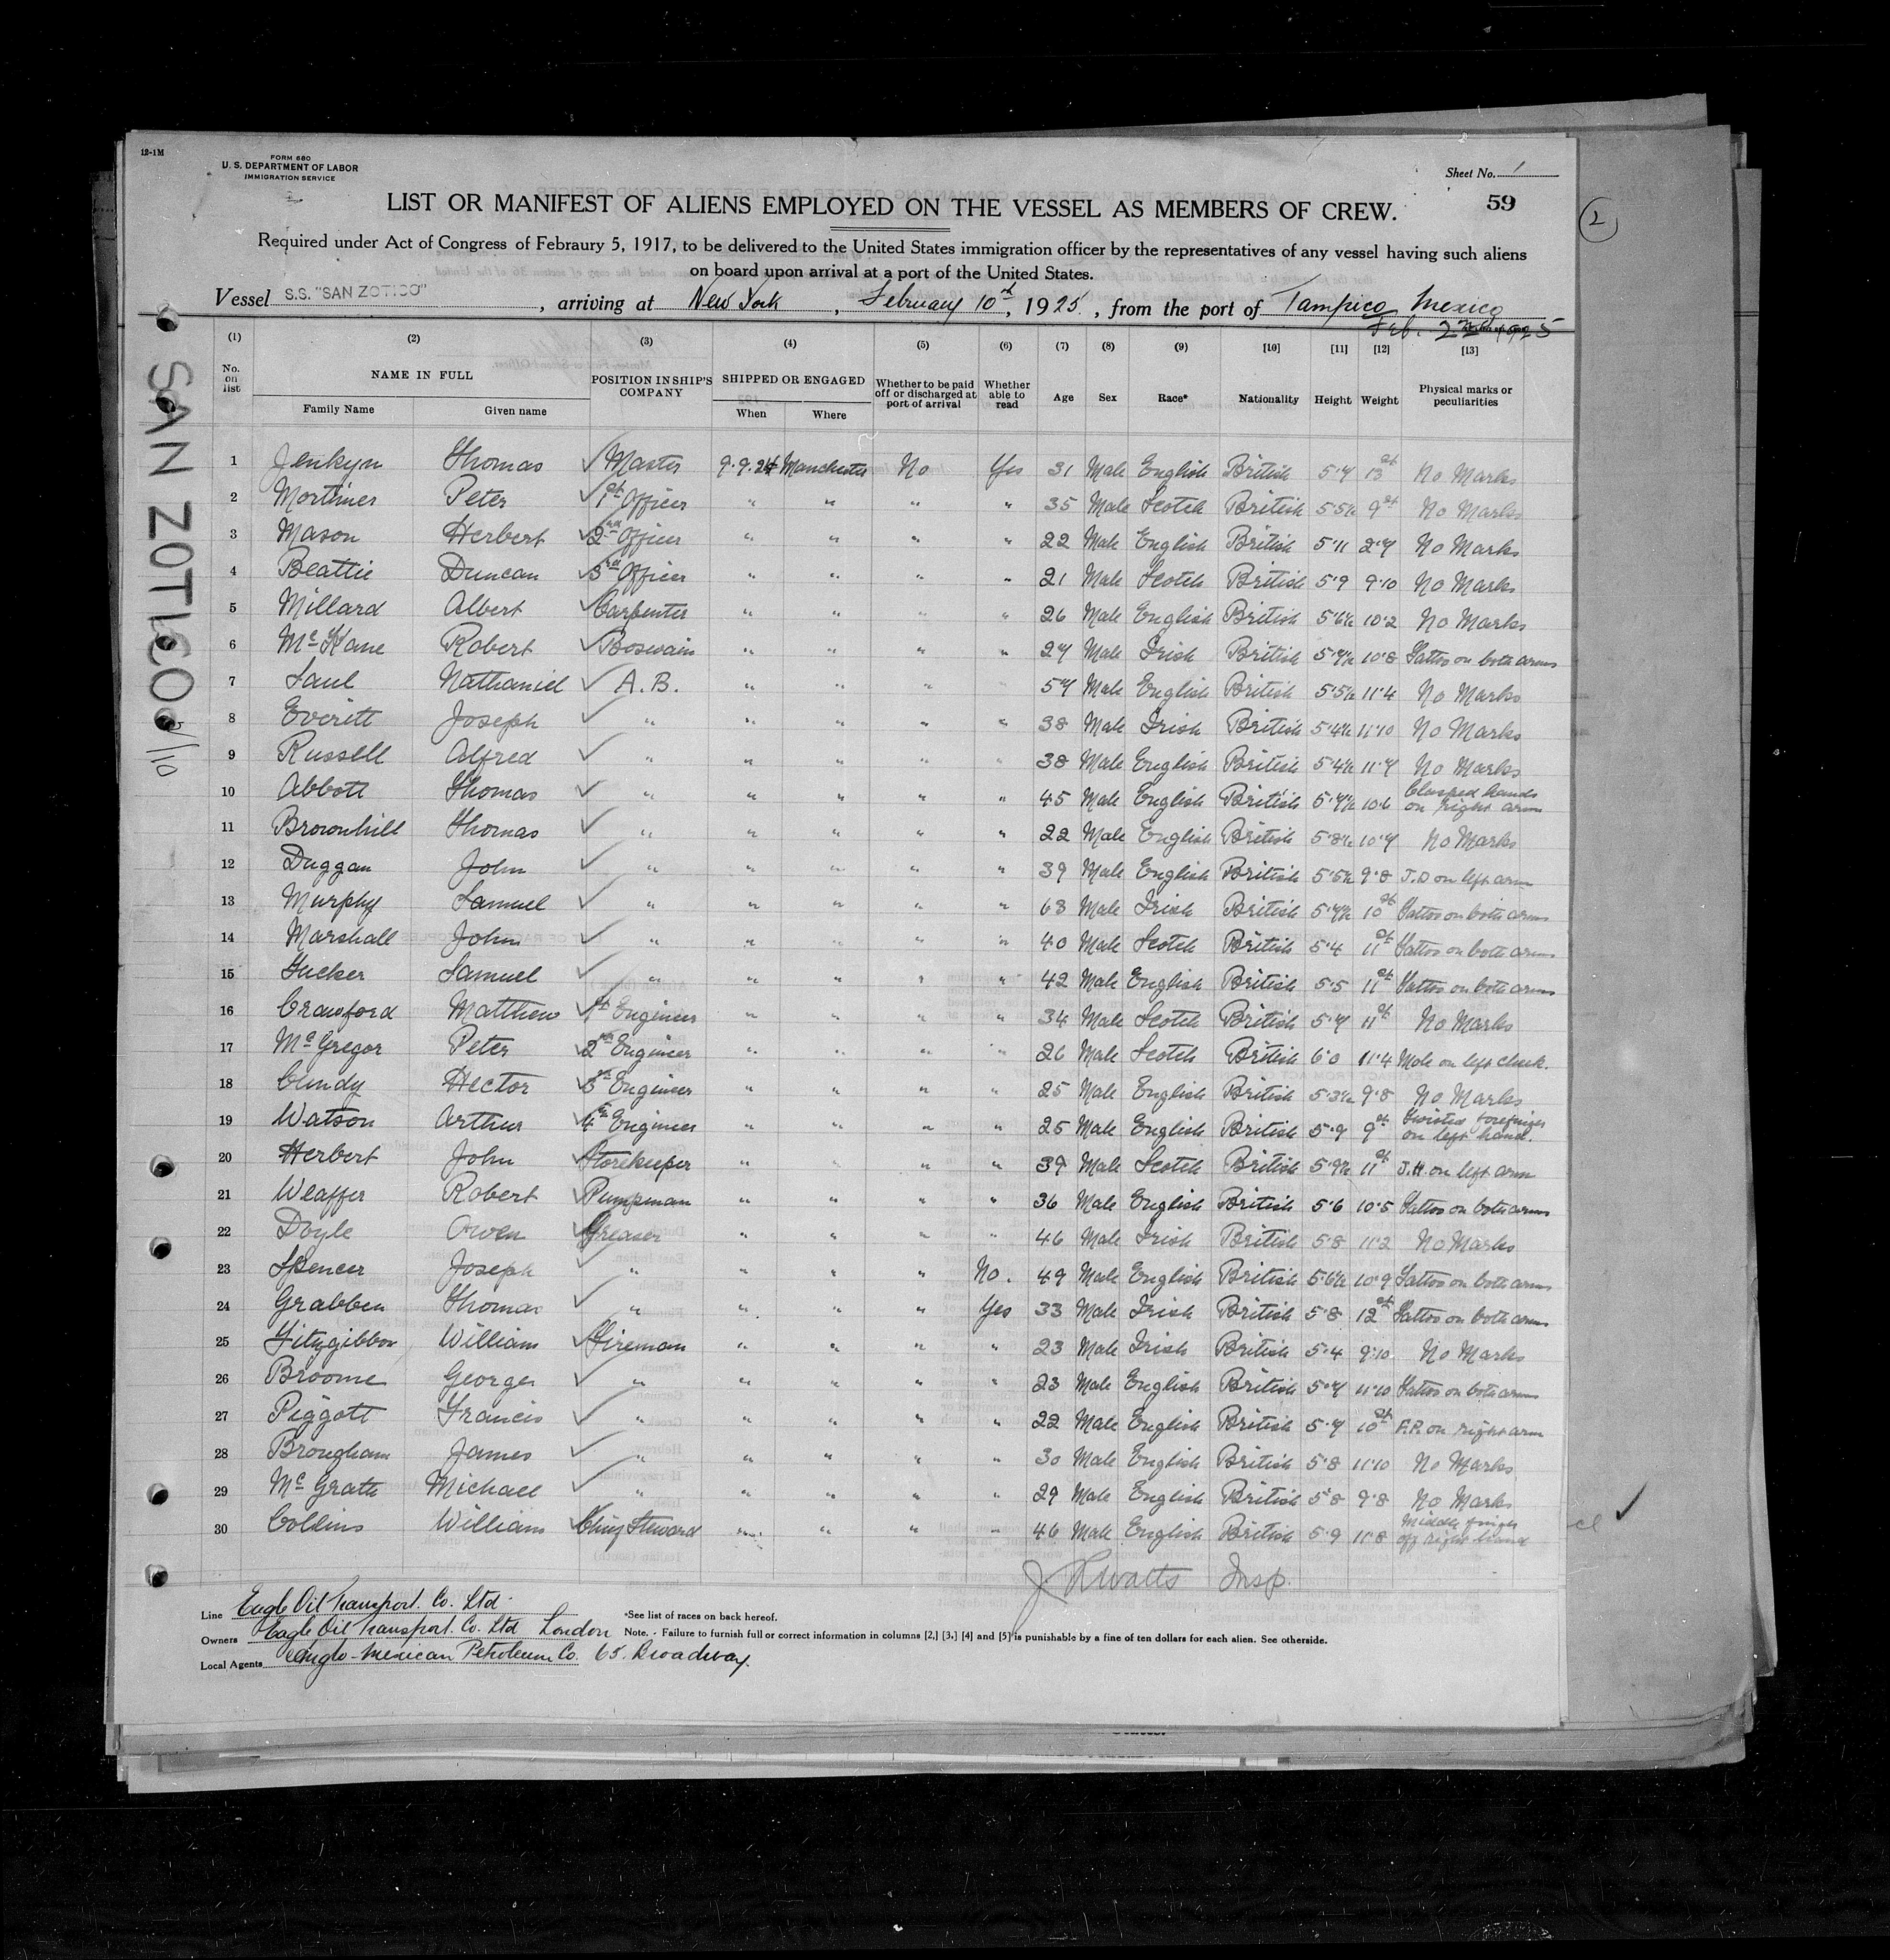 12-1M
FORM 680
U. S. DEPARTMENT OF LABOR
IMMIGRATION SERVICE
Sheet No. 1
59
2
LIST OR MANIFEST OF ALIENS EMPLOYED ON THE VESSEL AS MEMBERS OF CREW.
Required under Act of Congress of Febraury 5, 1917, to be delivered to the United States immigration officer by the representatives of any vessel having such aliens
on board upon arrival at a port of the United States.
Vessel S.S. "SAN ZOTICO", arriving at New York, February 10th, 1925, from the port of Tampico Mexico
Feb. 2nd 1925
SAN ZOTICO
2/10
(1) (2) (3) (4) (5) (6) (7) (8) (9) [10] [11] [12] [13]
No. on list NAME IN FULL POSITION IN SHIP'S COMPANY SHIPPED OR ENGAGED Whether to be paid off or discharged at port of arrival Whether able to read Age Sex Race* Nationality Height Weight Physical marks or peculiarities
Family Name Given name When Where
1 Jenkyn Thomas ✓ Master 9.9.24 Manchester No Yes 31 Male English British 5.7 13st No Marks
2 Mortimer Peter ✓ 1st Officer " " " " 35 Male Scotch British 5.5½ 9st No Marks
3 Mason Herbert ✓ 2nd Officer " " " " 22 Male English British 5.11 No Marks
4 Beattie Duncan ✓ 3rd Officer " " " " 21 Male Scotch British 5.9 9.10 No Marks
5 Millard Albert ✓ Carpenter " " " " 26 Male English British 5.6½ 10.2 No Marks
6 Mc Kane Robert ✓ Boswain " " " " 27 Male Irish British 5.7½ 10.8 Tattoo on both arms
7 Saul Nathaniel ✓ A.B. " " " " 57 Male English British 5.5½ 11.4 No Marks
8 Everitt Joseph ✓ " " " " " 38 Male Irish British 5.4½ 11.10 No Marks
9 Russell Alfred ✓ " " " " " 38 Male English British 5.4½ 11.7 No Marks
10 Abbott Thomas ✓ " " " " " 45 Male English British 5.7½ 10.6 Clasped hands on right arm
11 Brownhill Thomas ✓ " " " " " 22 Male English British 5.8½ 10.7 No Marks
12 Duggan John ✓ " " " " " 39 Male English British 5.5½ 9.8 J.D on left arm
13 Murphy Samuel ✓ " " " " " 63 Male Irish British 5.7½ 10st Tattoo on both arms
14 Marshall John ✓ " " " " " 40 Male Scotch British 5.4 11st Tattoo on both arms
15 Tucker Samuel ✓ " " " " " 42 Male English British 5.5 11st Tattoo on both arms
16 Crawford Matthew ✓ 1st Engineer " " " " 34 Male Scotch British 5.7 11st No Marks
17 Mc Gregor Peter ✓ 2nd Engineer " " " " 26 Male Scotch British 6.0 11.4 Mole on left cheek.
18 Cundy Hector ✓ 3rd Engineer " " " " 25 Male English British 5.3½ 9.8 No Marks
19 Watson Arthur ✓ 4th Engineer " " " " 25 Male English British 5.9 9st Twisted forefinger on left hand.
20 Herbert John ✓ Storekeeper " " " " 39 Male Scotch British 5.9½ 11st J.H. on left arm
21 Weaffer Robert ✓ Pumpman " " " " 36 Male English British 5.6 10.5 Tattoo on both arms
22 Doyle Owen ✓ Greaser " " " " 46 Male Irish British 5.8 11.2 No Marks
23 Spencer Joseph ✓ " " " " No. 49 Male English British 5.6½ 10.9 Tattoo on both arms
24 Grabben Thomas ✓ " " " " Yes 33 Male Irish British 5.8 12st Tattoo on both arms
25 Fitzgibbon William ✓ Fireman " " " " 23 Male Irish British 5.4 9.10 No Marks
26 Broome George ✓ " " " " " 23 Male English British 5.7 11.10 Tattoo on both arms
27 Piggott Francis ✓ " " " " " 22 Male English British 5.7 10st F.P. on right arm
28 Brougham James ✓ " " " " " 30 Male English British 5.8 11.10 No Marks
29 Mc Grath Michael ✓ " " " " " 29 Male English British 5.8 9.8 No Marks
30 Collins William ✓ Chief Steward " " " " 46 Male English British 5.9 11.8 Middle finger off right hand
J. H Watts Insp.
Line Eagle Oil Transport. Co. Ltd.
*See list of races on back hereof.
Owners Eagle Oil Transport. Co. Ltd London
Note. - Failure to furnish full or correct information in columns [2,] [3,] [4] and [5] is punishable by a fine of ten dollars for each alien. See otherside.
Local Agents Anglo-Mexican Petroleum Co. 65. Broadway.